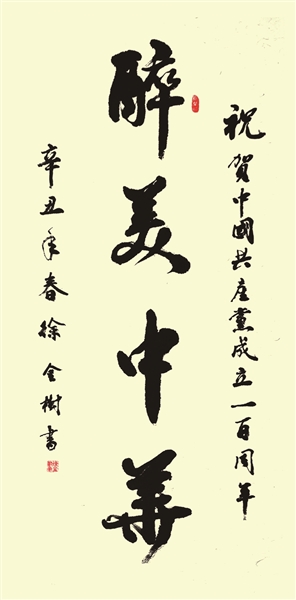 祝賀中國共産黨成立一百周年
醉美中華
辛丑年春徐金樹書